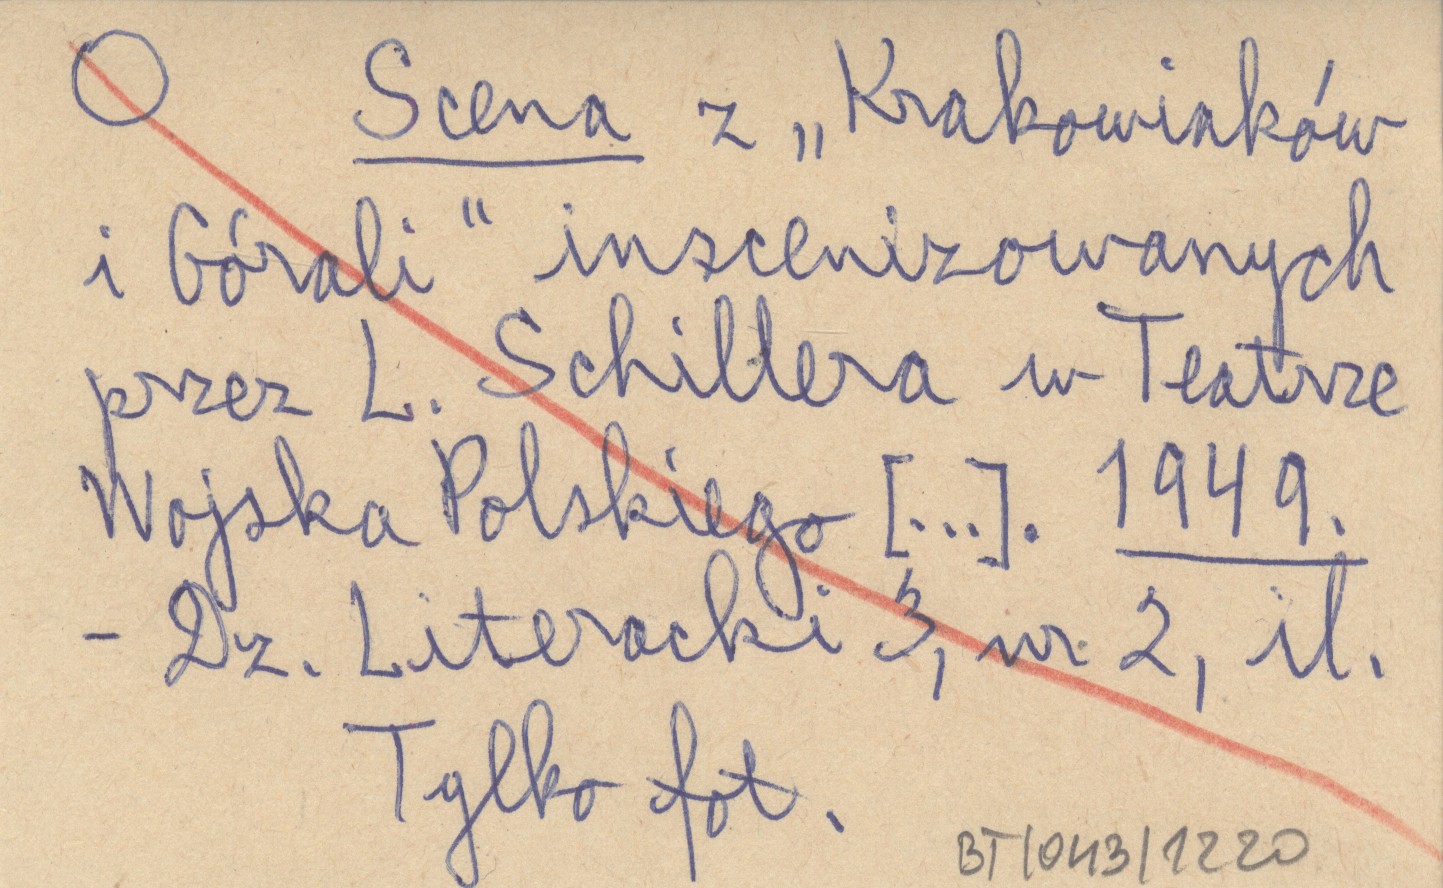 Scena z „Krakowiaków
i Górali" inscenizowanych
przez L. Schillera w Teatrze
Wojska Polskiego [...]. 1949.
- Dz. Literacki 3, nr 2, il.
Tylko fot.
BT/043/1220